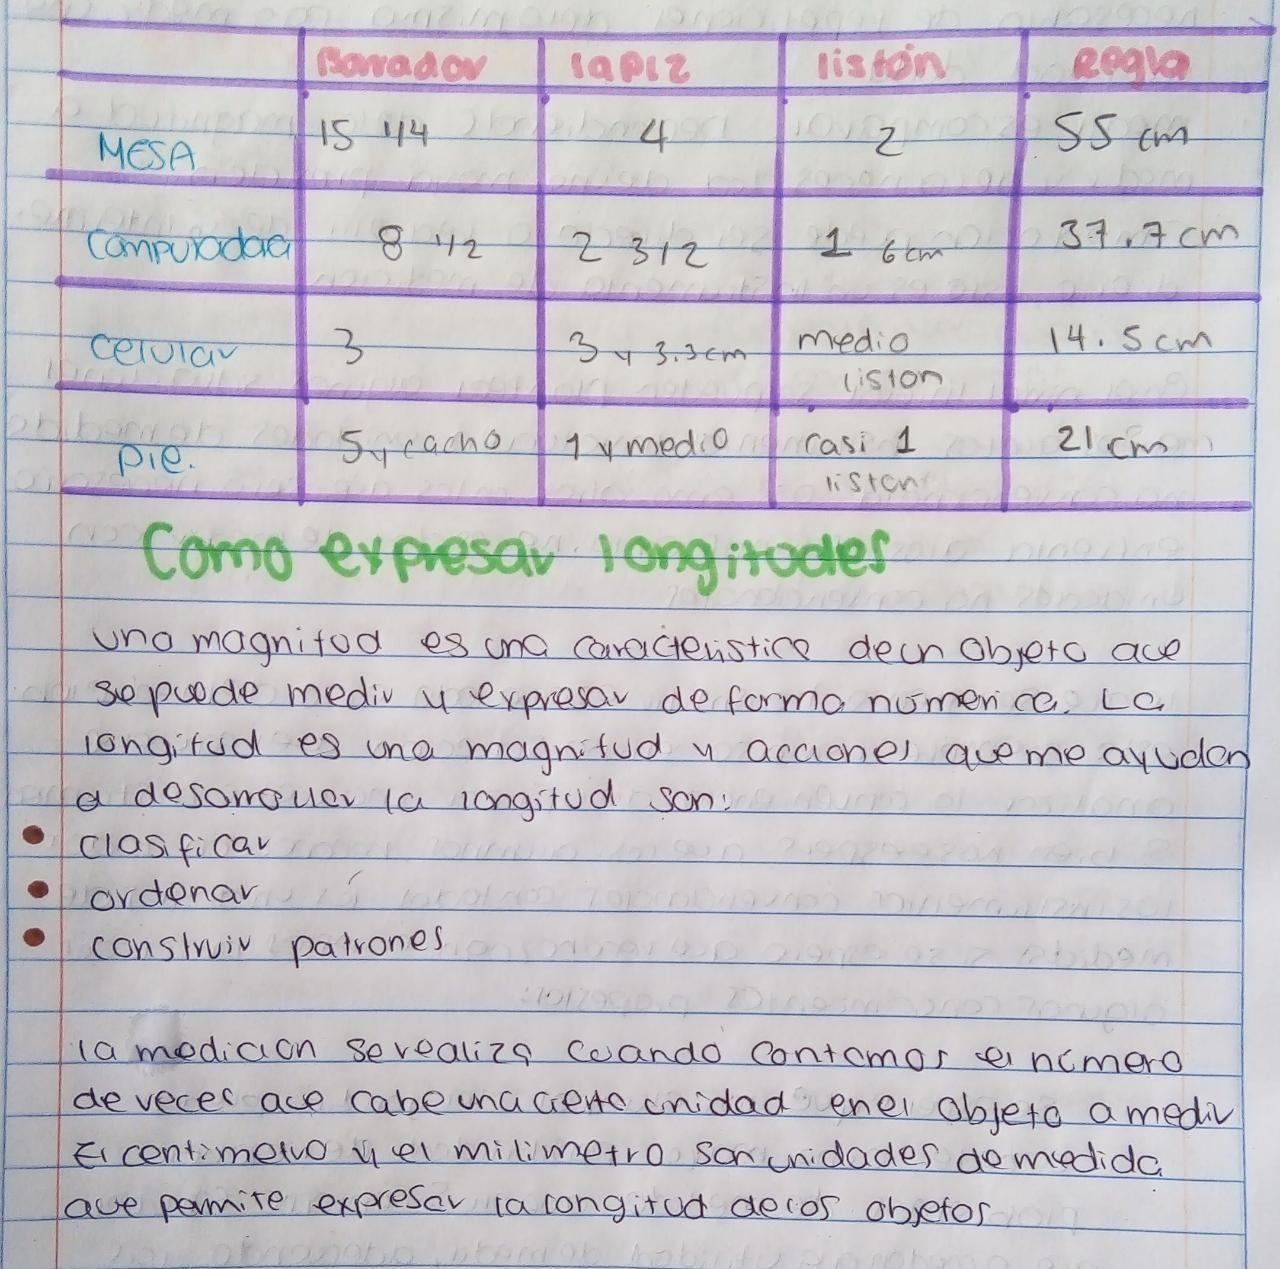 Borrador lapiz listón Regla
MESA 15 1/4 4 2 55 cm
Computadora 8 1/2 2 3/2 1 6cm 37.7cm
celular 3 3 y 3.3cm medio liston 14.5cm
pie. 5 y cacho 1 y medio casi 1 liston 21 cm
Como expresar longitudes
una magnitud es una caracteristica de un objeto que
se puede medir y expresar de forma númerica. La
longitud es una magnitud y acciones que me ayudan
a desarrollar la longitud son:
• clasificar
• ordenar
• construir patrones
la medicion se realiza cuando contamos el número
de veces que cabe una cierta unidad en el objeto a medir
El centimetro y el milimetro son unidades de medida
que permite expresar la longitud de los objetos